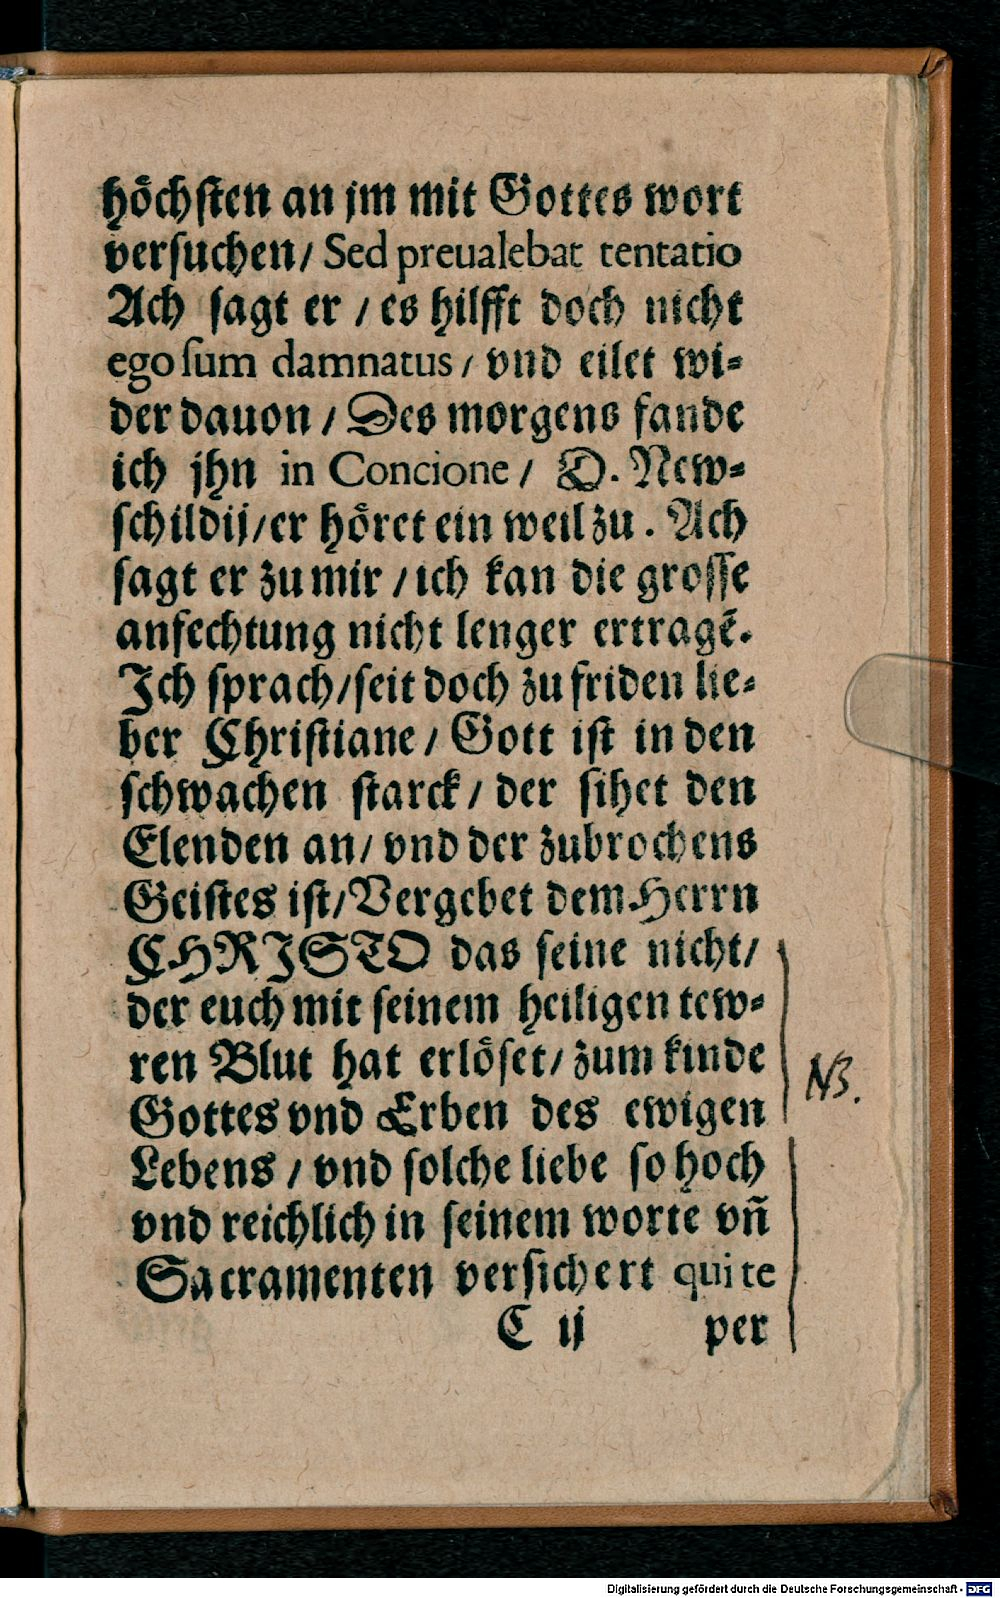 höchsten an jm mit Gottes wort
versuchen/ Sed preualebat tentatio
Ach sagt er / es hilfft doch nicht
ego sum damnatus / vnd eilet wi⸗
der dauon / Des morgens fande
ich jhn in Concione / D. New⸗
schildij/er höret ein weil zu. Ach
sagt er zu mir / ich kan die grosse
anfechtung nicht lenger ertragẽ.
Ich sprach/seit doch zu friden lie⸗
ber Christiane / Gott ist in den
schwachen starck / der sihet den
Elenden an/ vnd der zubrochens
Geistes ist/Vergebet dem Herrn
CHRISTO das seine nicht/
der euch mit seinem heiligen tew⸗
ren Blut hat erlöset/ zum kinde
Gottes vnd Erben des ewigen
Lebens / vnd solche liebe so hoch
vnd reichlich in seinem worte vñ
Sacramenten versichert qui te
C ij per
NB.
Digitalisierung gefördert durch die Deutsche Forschungsgemeinschaft - DFG